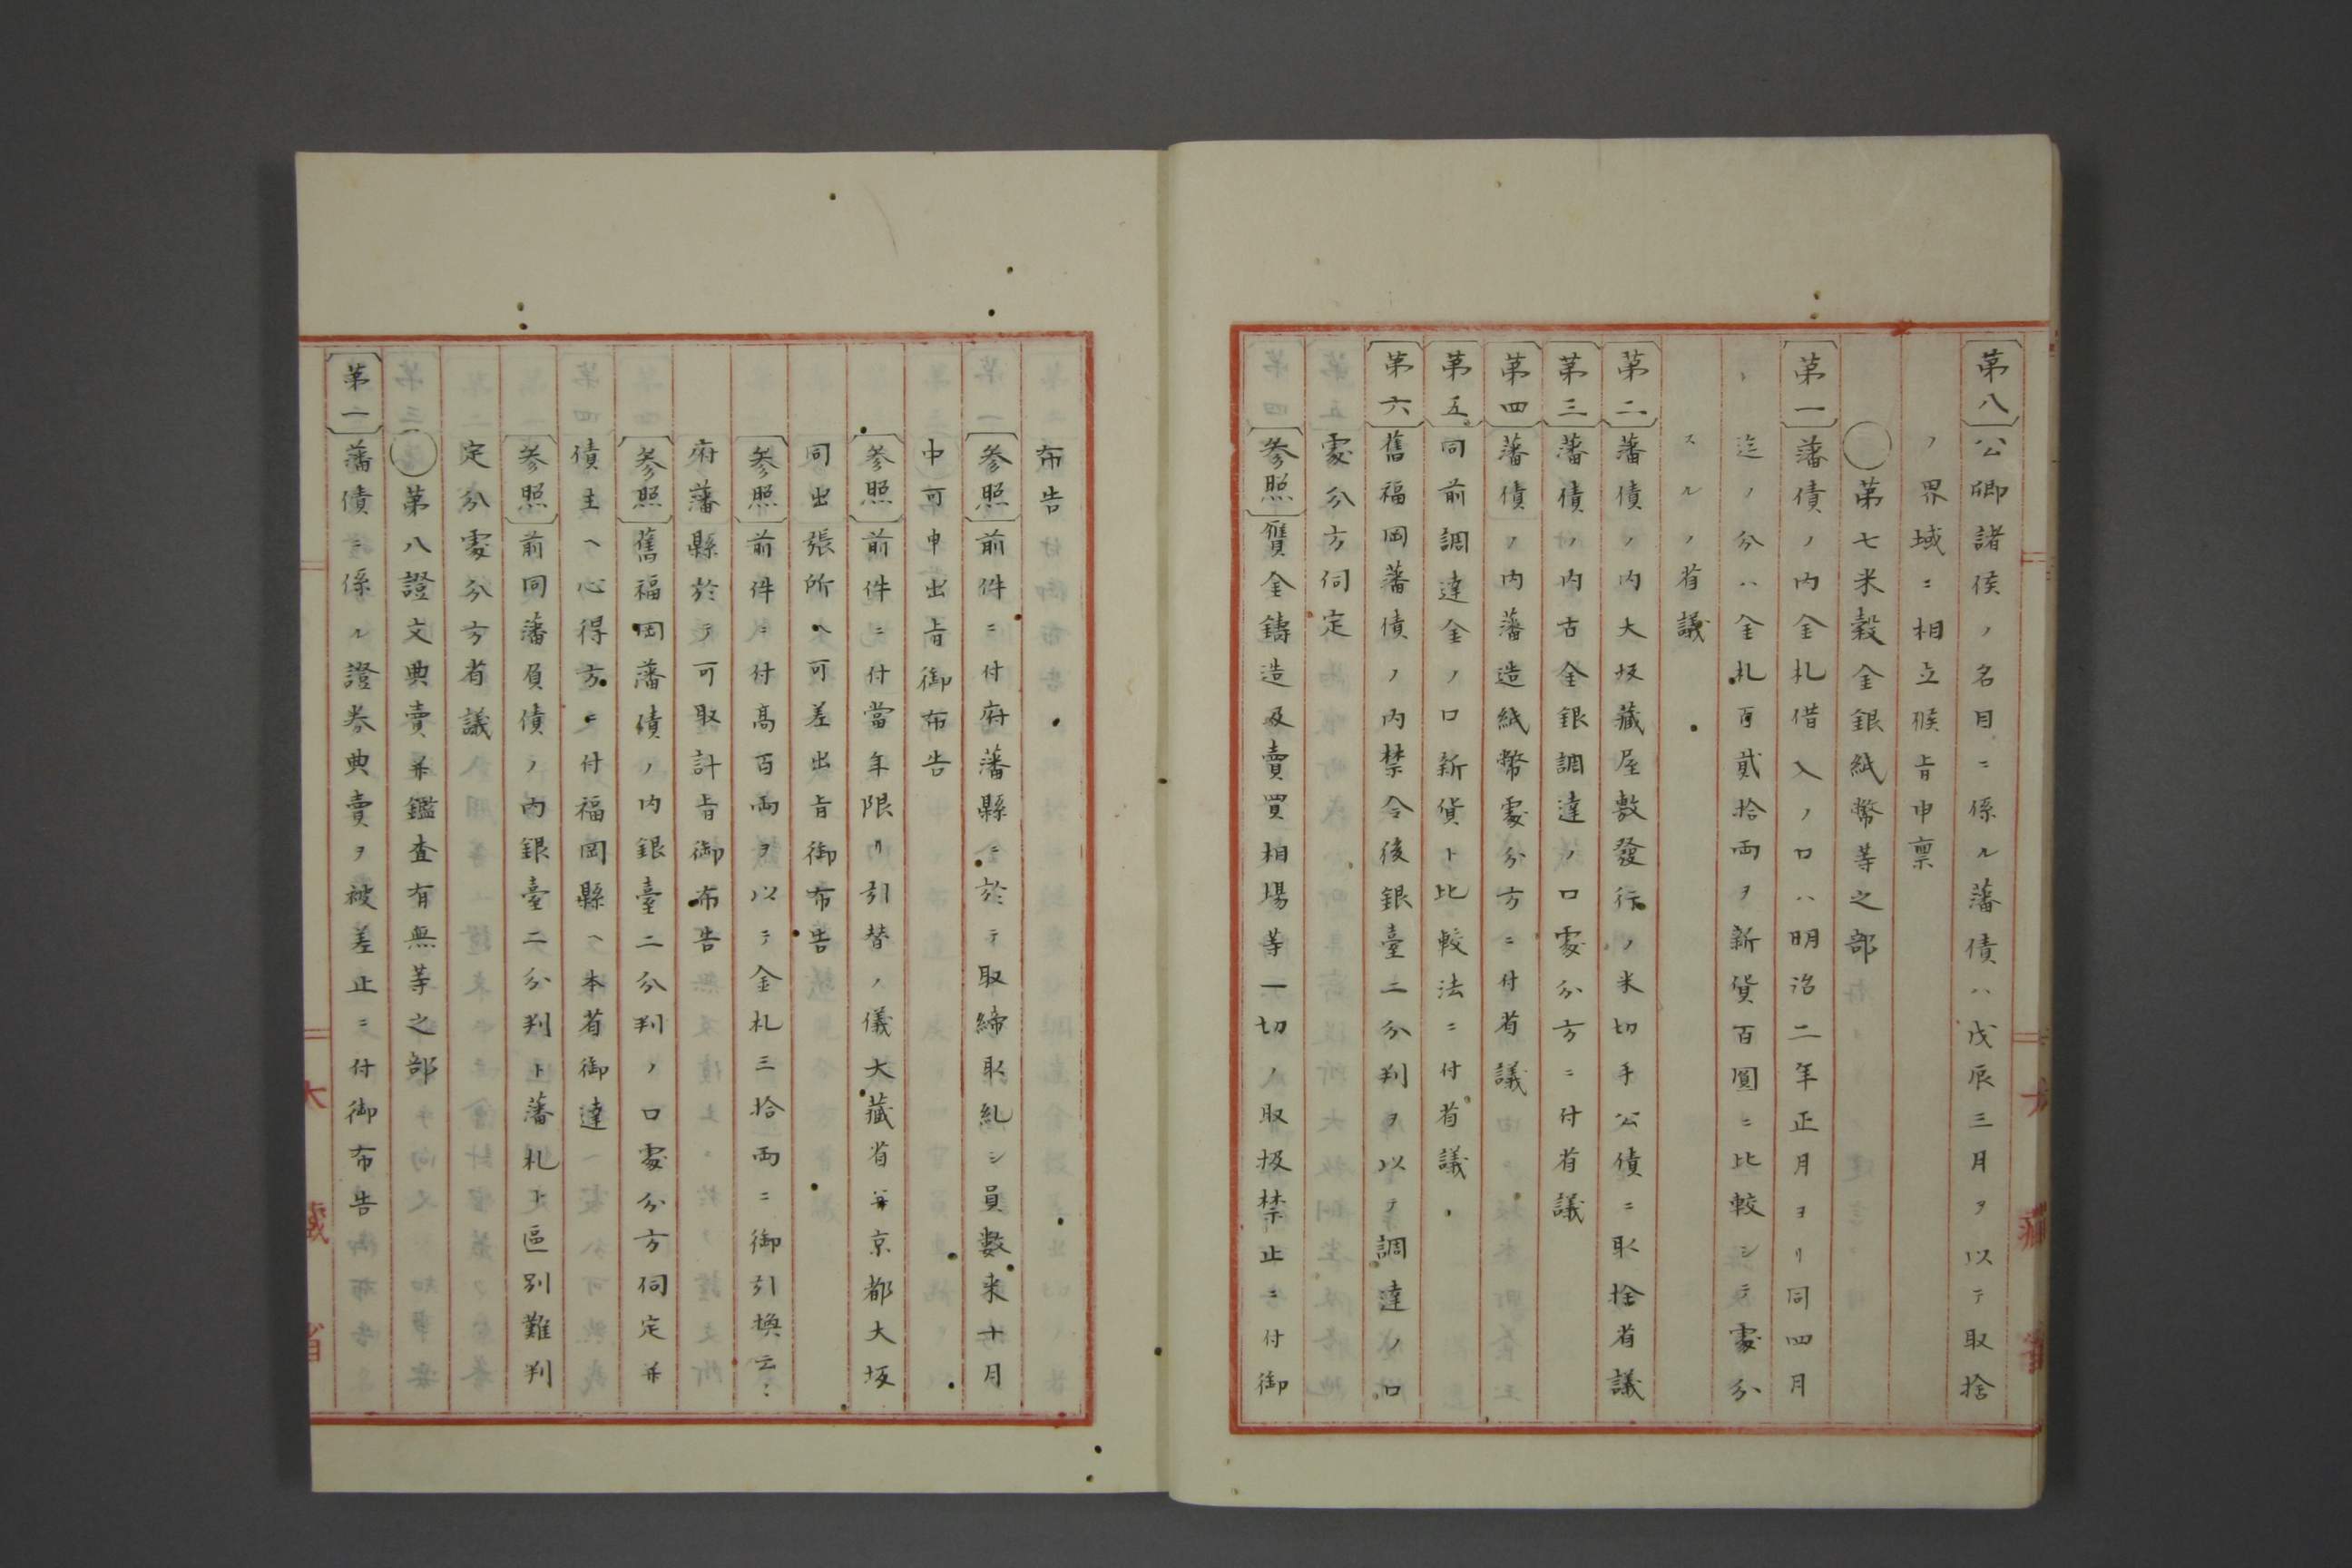 第八 公卿諸侯ノ名目ニ係ル藩債ハ戊辰三月ヲ以テ取捨
ノ界域ニ相立候旨申禀
〇第七米穀金銀紙幣等之部
第一 藩債ノ内金札借入ノ口ハ明治二年正月ヨリ同四月
迄ノ分ハ金札百貳拾両ヲ新貨百圓ニ比較シテ處分
スルノ省議
第二 藩債ノ内大坂藏屋敷發行ノ米切手公債ニ取捨省議
第三 藩債ノ内古金銀調達ノ口處分方ニ付省議
第四 藩債ノ内藩造紙幣處分方ニ付省議
第五 同前調達金ノ口新貨ト比較法ニ付省議
第六 舊福岡藩債ノ内禁令後銀臺二分判ヲ以テ調達ノ口
處分方伺定
参照 贋金鑄造及賣買相場等一切ノ取扱禁止ニ付御
布告
参照 前件ニ付府藩縣ニ於テ取締取糺シ員數来十月
中可申出旨御布告
参照 前件ニ付當年限リ引替ノ儀大藏省并京都大坂
同出張所ヘ可差出旨御布告
参照 前件ニ付髙百両ヲ以テ金札三拾両ニ御引換云々
府藩縣於テ可取計旨御布告
参照 舊福岡藩債ノ内銀臺二分判ノ口處分方伺定并
債主ヘ心得方ニ付福岡縣ヘ本省御達
参照 前同藩負債ノ内銀臺二分判ト藩札ト區別難判
定分處分方省議
〇第八證文典賣并鑑査有無等之部
第一 藩債ニ係ル證券典賣ヲ被差止ニ付御布告
大藏省